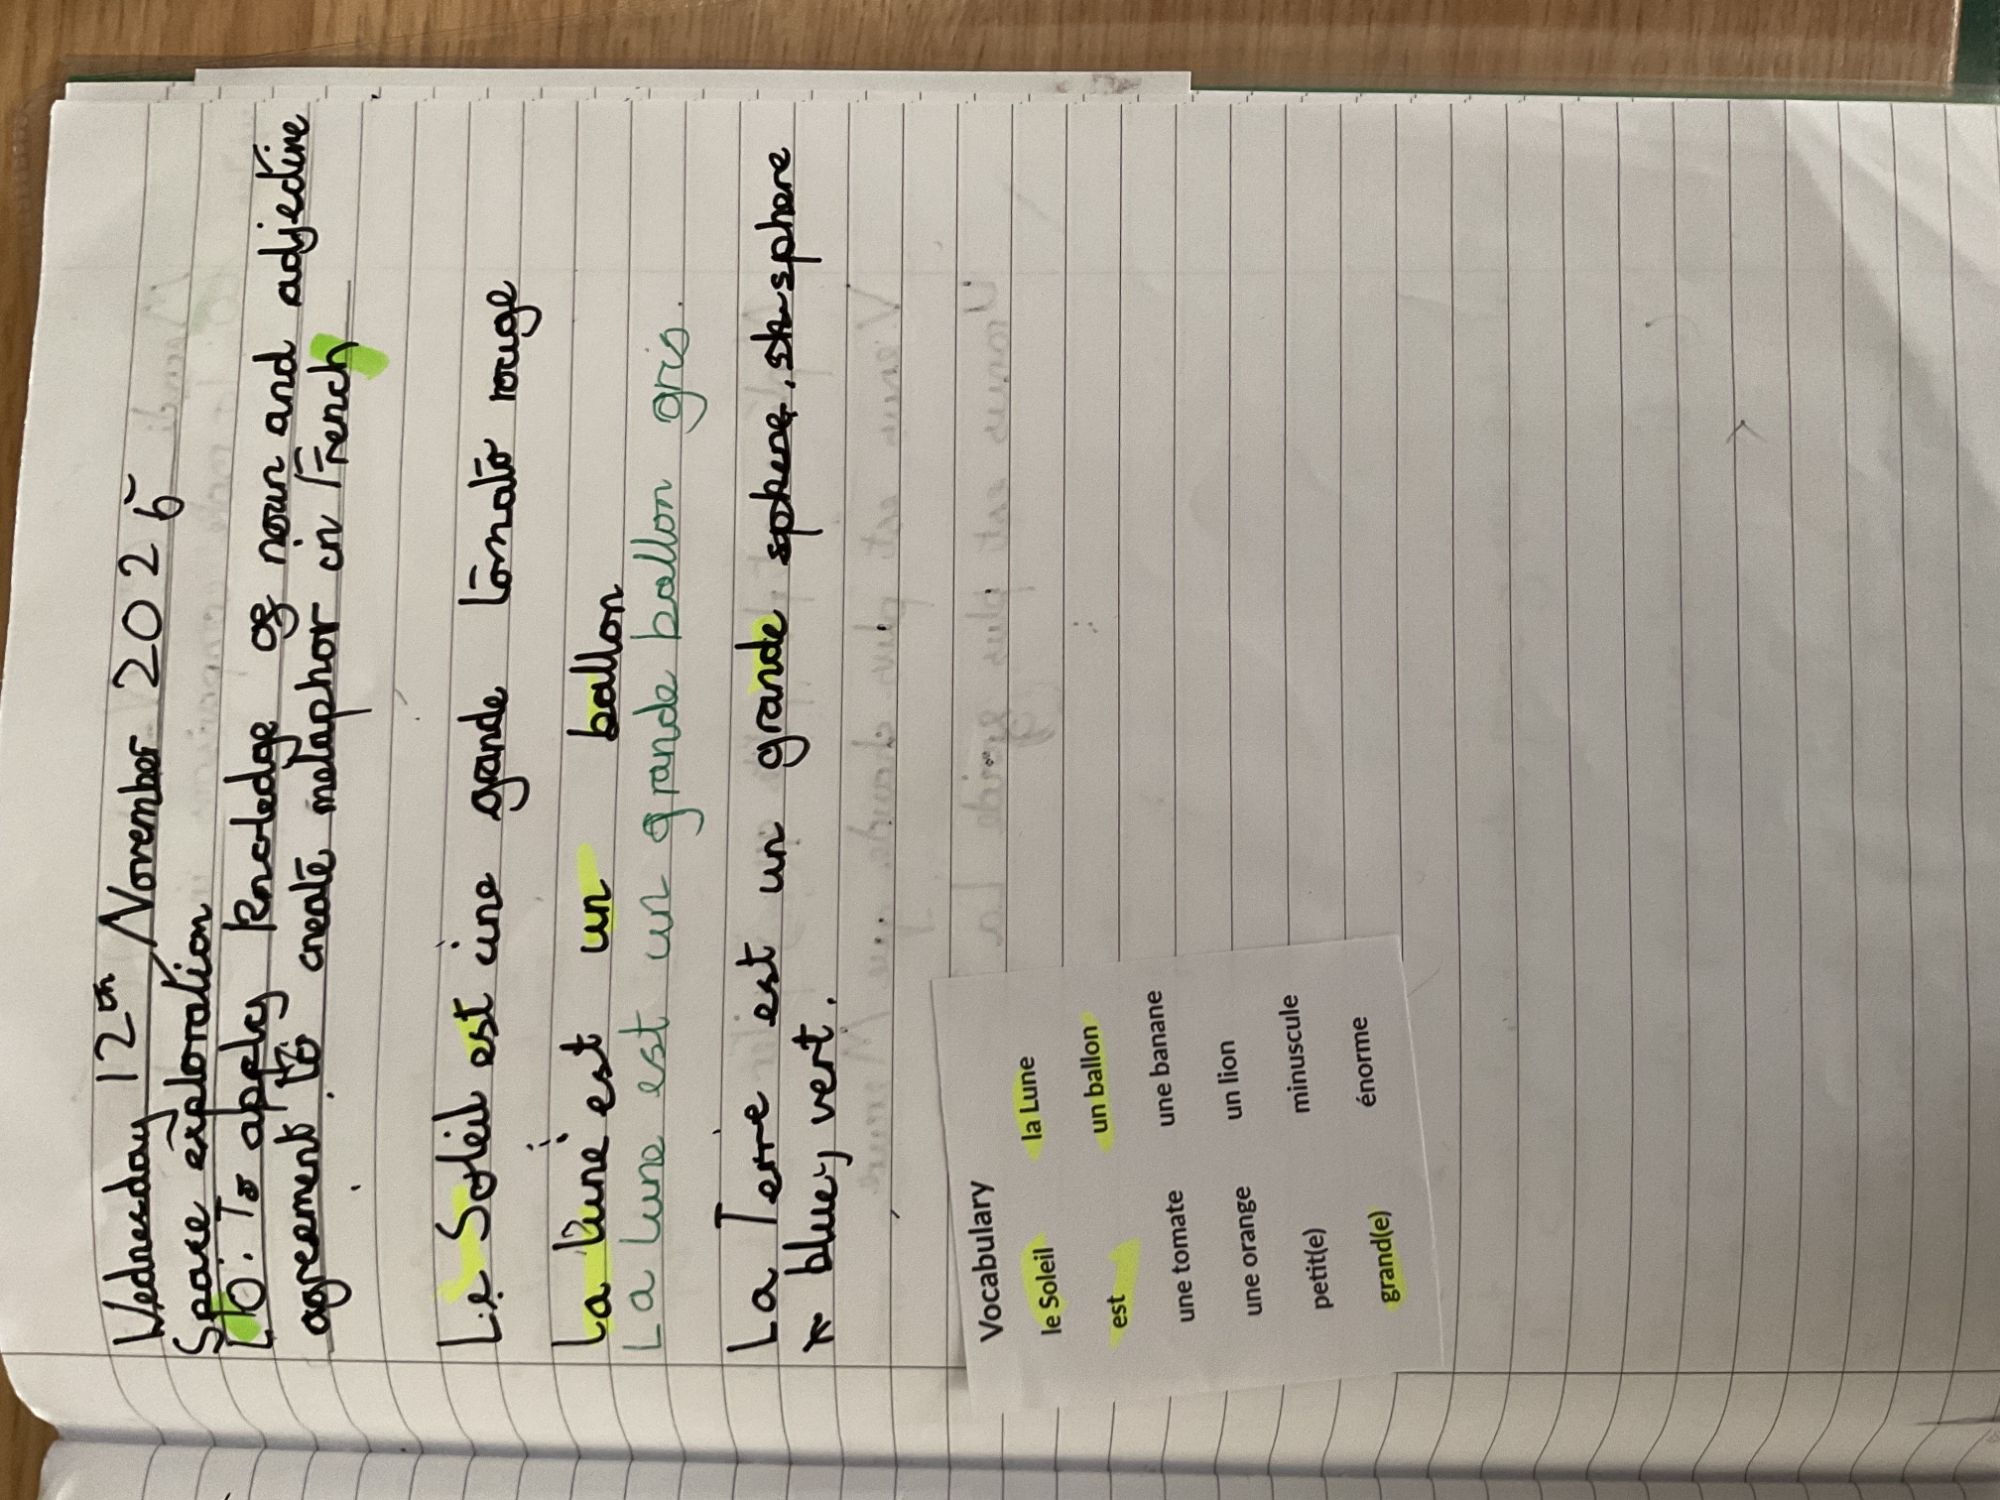 Wednesday 12th November 2025
Space exploration
LO: To apply knoledge of noun and adjective
agreement to create metaphor in French
Le Soleil est une grande tomato rouge
La lune est un ballon
La lune est un grande ballon gris.
La Terre est un grande sphere
bluey vert.
Vocabulary
le Soleil la Lune
est un ballon
une tomate une banane
une orange un lion
petit(e) minuscule
grand(e) énorme